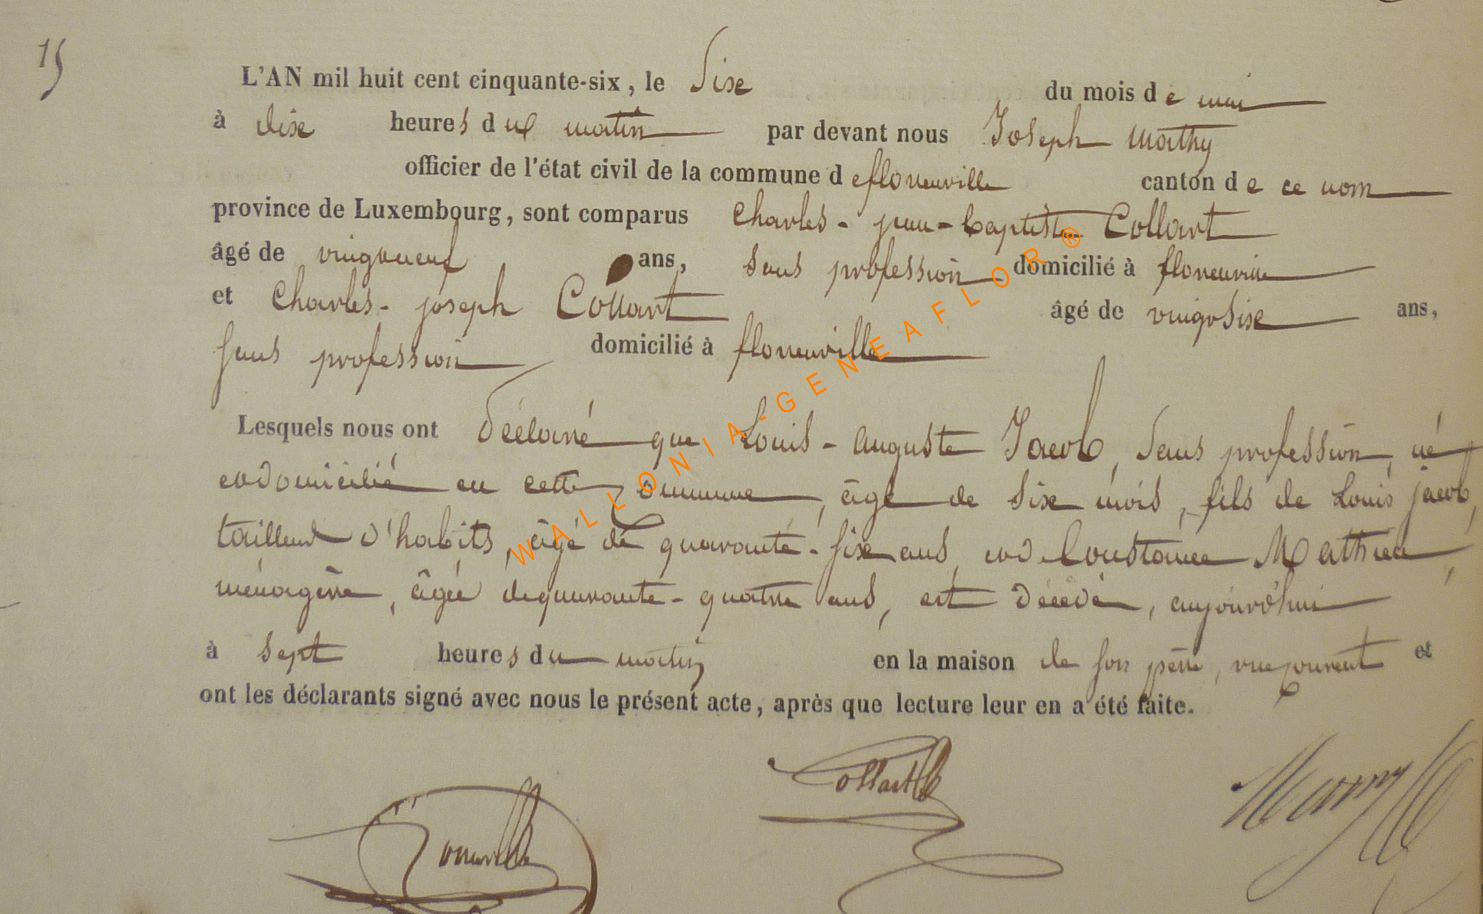 15
L'AN mil huit cent cinquante-six, le Six du mois de mai
à dix heures du matin par devant nous Joseph Mathy
officier de l'état civil de la commune de florenville canton de ce nom
province de Luxembourg, sont comparus Charles-jean-baptiste Collart
âgé de vingtneuf ans, sans profession domicilié à florenville
et Charles-joseph Collart âgé de vingtsix ans,
sans profession domicilié à florenville
Lesquels nous ont déclaré que Louis-auguste Jacob, sans profession, né
et domicilié en cette commune, âgé de six mois, fils de Louis jacob,
tailleur d'habits, âgé de quarante-six ans, et de Constance Mathieu,
ménagère, âgée de quarante-quatre ans, est décédé, aujourd'hui
à sept heures du matin en la maison de son père, rue et
ont les déclarants signé avec nous le présent acte, après que lecture leur en a été faite.
Collart
WALLONIA-GENEAFLOR®